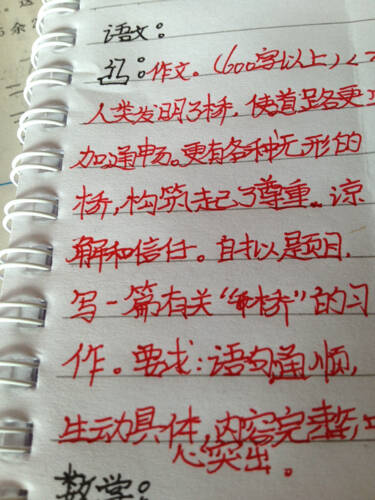 语文：
：作文。(600字以上)
人类发明了桥，使道路更
加通畅。更有各种无形的
桥，构筑起了尊重、谅
解和信任。自拟题目，
写一篇有关“桥”的习
作。要求：语句通顺，
生动具体，内容完整，中
心突出。
数学：